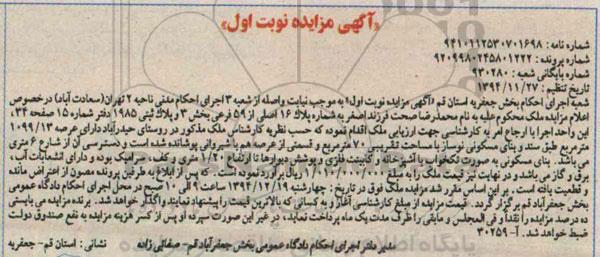 «آگهی مزایده نوبت اول»
شماره نامه : ۹۴۱۰۱۱۲۵۳۰۷۰۱۶۹۸
شماره پرونده : ۹۲۰۹۹۸۰۲۴۵۸۰۱۲۲۲
شماره بایگانی شعبه : ۹۳۰۲۸۰
تاریخ تنظیم : ۱۳۹۴/۱۱/۲۷
شعبه اجرای احکام بخش جعفریه استان قم «آگهی مزایده نوبت اول» به موجب نیابت واصله از شعبه ۳ اجرای احکام مدنی ناحیه ۲ تهران (سعادت آباد) درخصوص
اعلام مزایده ملک محکوم علیه به نام محمدرضا صحت فرزند اصغر به شماره پلاک ۱۶ اصلی از ۵۹ فرعی بخش ۳ و پلاک ثبتی ۱۹۸۵ دفتر شماره ۱۵ صفحه ۳۴،
این واحد اجرا با ارجاع امر به کارشناسی جهت ارزیابی ملک اقدام نموده که حسب نظریه کارشناس ملک مذکور در روستای حیدرآباد دارای عرصه ۱۰۹۹/۱۳
مترمربع طبق سند و بنای مسکونی نوساز با مساحت تقریبی ۷۰ مترمربع و قسمتی از عرصه هم با شیروانی پوشانده شده است و دسترسی آن از شارع ۶ متری
می باشد. بنای مسکونی به صورت تکخواب با آشپزخانه و کابینت فلزی و پوشش دیوارها تا ارتفاع ۱/۲۰ متری و کف سرامیک بوده و دارای انشعابات آب،
برق و گاز می باشد و در نهایت نیز قیمت ملک را به مبلغ ۱/۱۰۰/۰۰۰/۰۰۰ ریال برآورد نموده است. که پس از ابلاغ به طرفین پرونده مصون از اعتراض مانده
و قطعیت یافته است. بر این اساس مقرر شد مزایده ملک فوق در تاریخ: چهارشنبه ۱۳۹۴/۱۲/۱۹ ساعت ۹ الی ۱۰ صبح در محل اجرای احکام دادگاه عمومی
بخش جعفرآباد قم برگزار گردد. قیمت مزایده از مبلغ کارشناسی آغاز و به کسانی که بالاترین قیمت را پیشنهاد نمایند واگذار خواهد شد. برنده مزایده می بایستی
ده درصد مزایده را نقداً و فی المجلس و مابقی را ظرف مدت یک ماه پرداخت نماید، در غیر این صورت سپرده او پس از کسر هزینه مزایده به نفع صندوق دولت
ضبط خواهد شد. آ- ۳۰۲۵۹
مدیر دفتر اجرای احکام دادگاه عمومی بخش جعفرآباد قم- صفائی زاده نشانی: استان قم- جعفریه